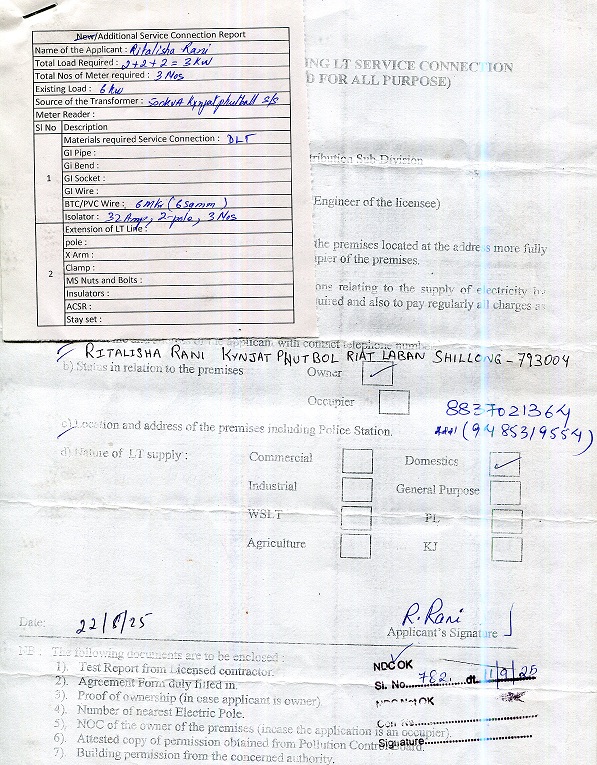 New/Additional Service Connection Report
Name of the Applicant : Ritalisha Rani
Total Load Required : 2+2+2 = 3 KW
Total Nos of Meter required : 3 Nos
Existing Load : 6 KW
Source of the Transformer : Kynjatphutball S/S
Meter Reader :
Sl No Description
Materials required Service Connection : DLT
GI Pipe :
GI Bend :
1 GI Socket :
GI Wire :
BTC/PVC Wire : 6 Mtr (6 sqmm)
Isolator : 32 Amp, 2-pole, 3 Nos
Extension of LT Line :
pole :
X Arm :
2 Clamp :
MS Nuts and Bolts :
Insulators :
ACSR :
Stay set :
NG LT SERVICE CONNECTION
D FOR ALL PURPOSE)
tribution Sub Division
Engineer of the licensee)
the premises located at the address more fully
pier of the premises.
ons relating to the supply of electricity in
uired and also to pay regularly all charges as
of the applicant with contact telephone numbe
RITALISHA RANI KYNJAT PHUTBOL RIAT LABAN SHILLONG - 793004
b) Status in relation to the premises Owner ✓
Occupier
8837021364
(9485319554)
c) Location and address of the premises including Police Station.
d) Nature of LT supply : Commercial Domestics ✓
Industrial General Purpose
WSLT PL
Agriculture KJ
Date: 22/8/25 R. Rani
Applicant's Signature
NB : The following documents are to be enclosed :
1). Test Report from Licensed contractor.
2). Agreement Form duly filled in.
3). Proof of ownership (in case applicant is owner)
4). Number of nearest Electric Pole.
5). NOC of the owner of the premises (incase the application is an occupier).
6). Attested copy of permission obtained from Pollution Control Board.
7). Building permission from the concerned authority.
NDC OK
Sl. No. 782 dt. 1/9/25
NDC Not OK
Con No.
Signature